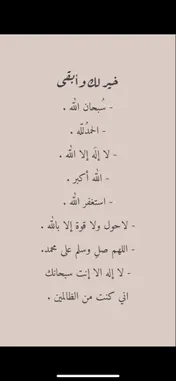 خير لك و أبقى
- سُبحان الله .
- الحمدُلله .
- لا إلَه إلا الله .
- الله أكبر .
- استغفر الله .
- لاحول ولا قوة إلا بالله .
- اللهم صلِ وسلم على محمد.
- لا إله الا إنت سبحانك
اني كنت من الظالمين .